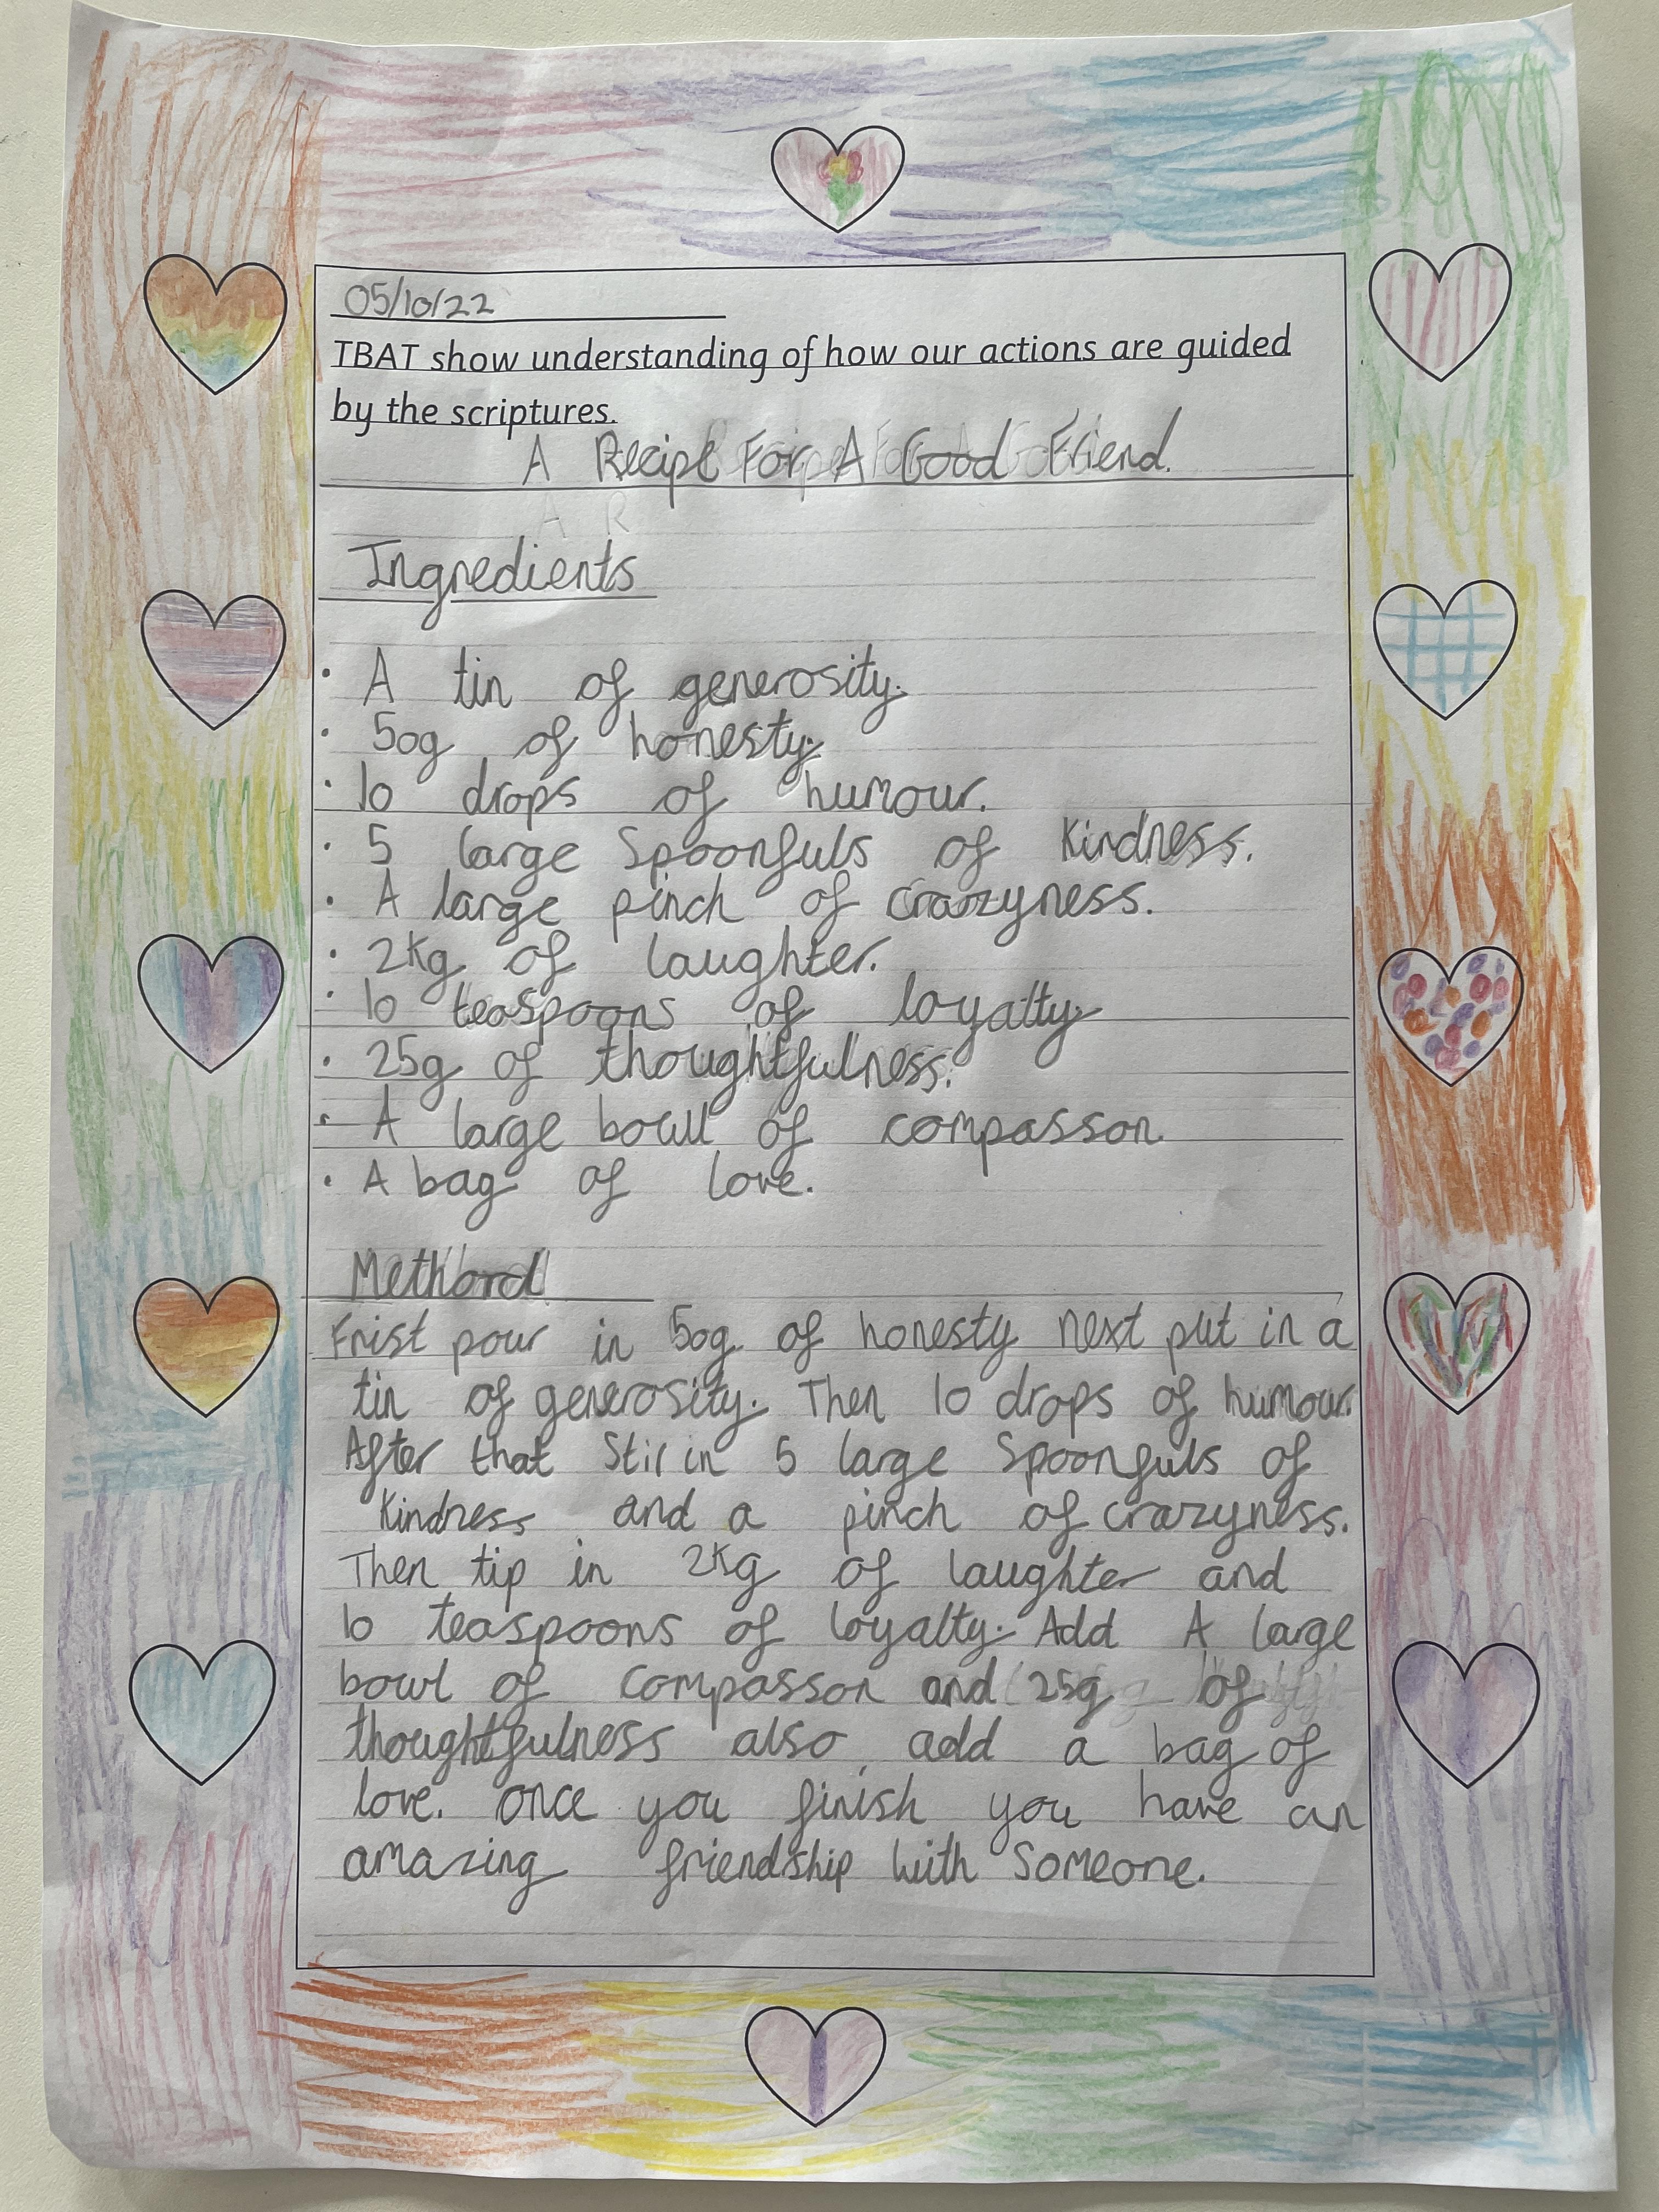 05/10/22
TBAT show understanding of how our actions are guided
by the scriptures.
A Recipe For A Good Friend.
Ingredients
• A tin of generosity.
• 50g of honesty.
• 10 drops of humour.
• 5 large spoonfuls of kindness.
• A large pinch of crazyness.
• 2kg of laughter.
• 10 teaspoons of loyalty.
• 25g of thoughtfulness.
• A large bowl of compasson.
• A bag of love.
Method
Frist pour in 50g of honesty next put in a
tin of generosity. Then 10 drops of humour.
After that Stir in 5 large Spoonfuls of
kindness and a pinch of crazyness.
Then tip in 2kg of laughter and
10 teaspoons of loyalty. Add A large
bowl of compasson and 25g of
thoughtfulness also, add a bag of
love. once you finish you have an
amazing friendship with someone.